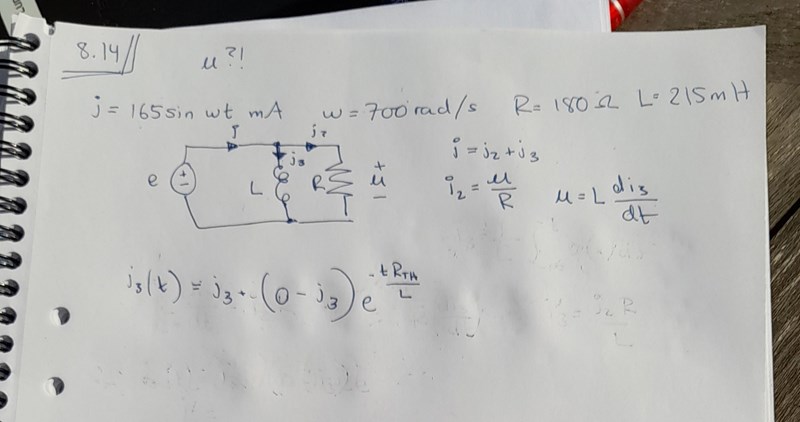 8.14//
u?!
j = 165 sin wt mA w = 700 rad/s R = 180 Ω L = 215 mH
j
j2
j3
e
L
R
+
u
-
j = j2 + j3
i2 = u/R
u = L di3/dt
j3(t) = j3 + (0 - j3) e^(-t RTH/L)